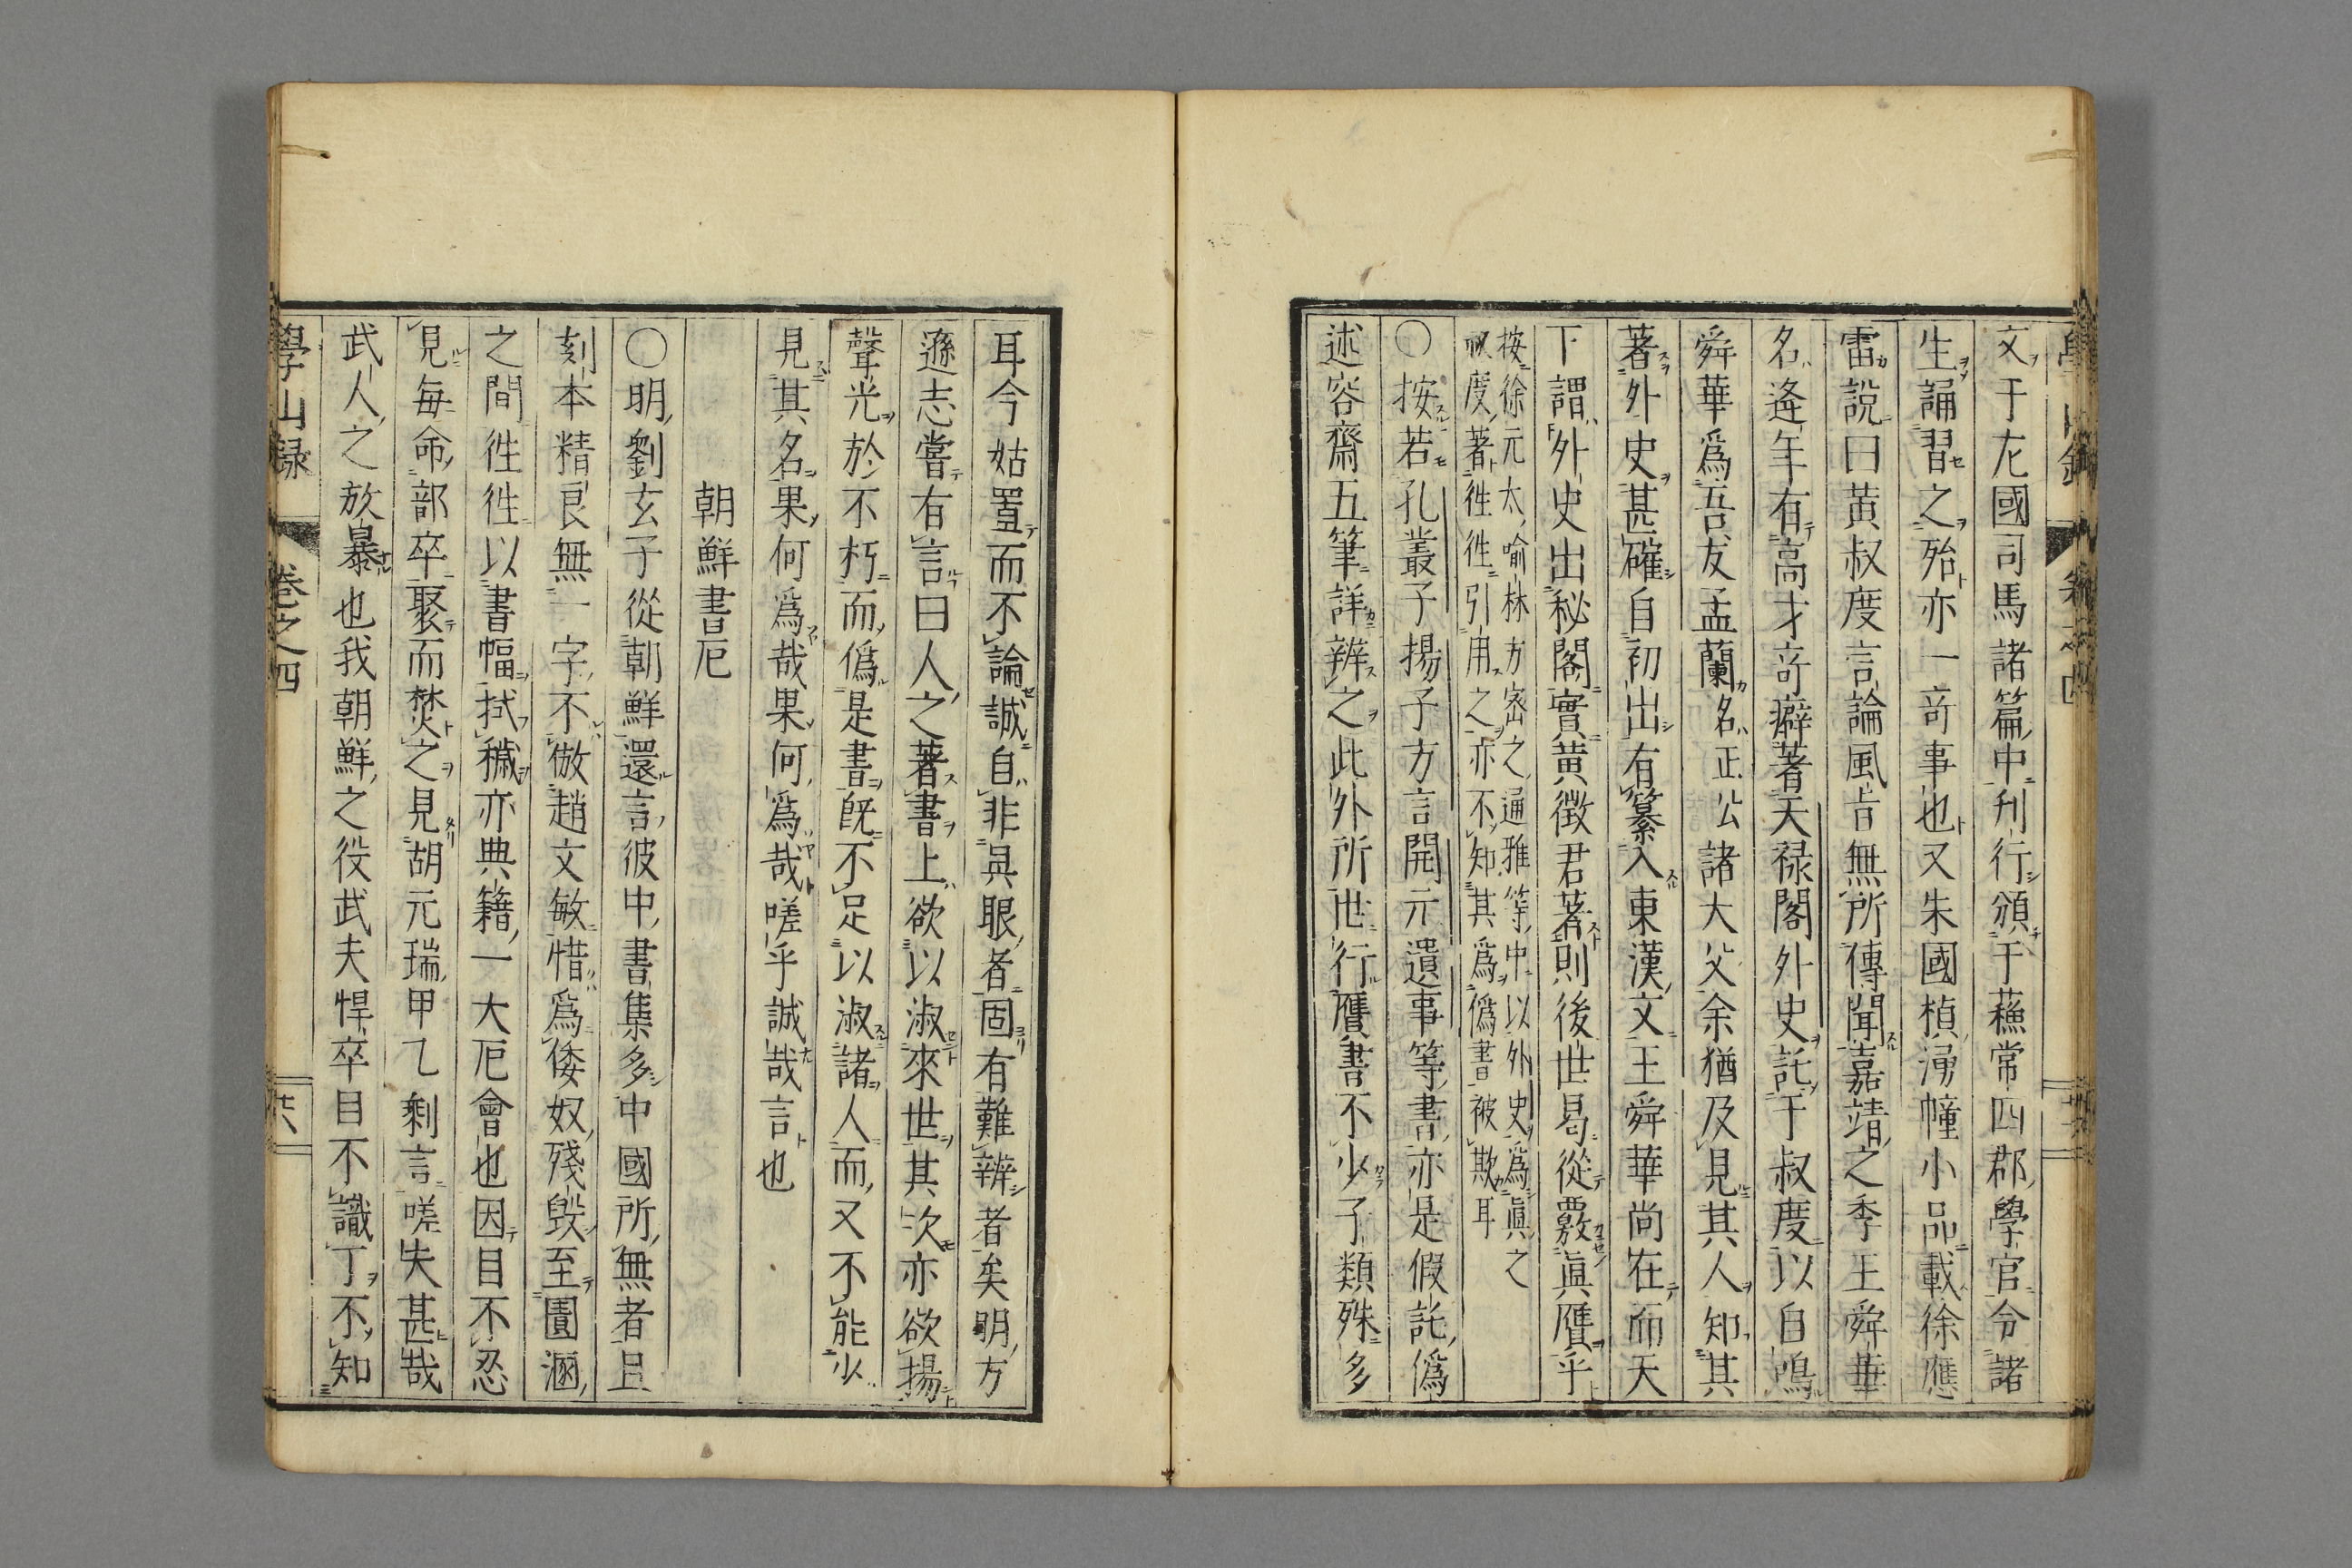 文于左國司馬諸篇中刋行頒于蘓常四郡學官令諸
生誦習之殆亦一竒事也又朱國楨湧幢小品載徐應
雷說曰黄叔度言論風旨無所傳聞嘉靖之季王舜華
名逄年有高才竒癖著天禄閣外史託于叔度以自鳴
舜華爲吾友孟蘭名正公諸大父余猶及見其人知其
著外史甚確自初出有纂入東漢文王舜華尚在而天
下謂外史出秘閣實黄徴君著則後世曷從覈眞贋乎
按徐元太喻林方密之通雅等中以外史爲眞之
叔度著徃徃引用之亦不知其爲僞書被欺耳
○按若孔叢子揚子方言開元遺事等書亦是假託僞
述容齋五筆詳辨之此外所世行贋書不少了類殊多
耳今姑置而不論誠自非具眼者固有難辨者矣明方
遜志嘗有言曰人之著書上欲以淑來世其次亦欲揚
聲光於不朽而僞是書既不足以淑諸人而又不能少
見其名果何爲哉果何爲哉嗟乎誠哉言也
朝鮮書厄
○明劉玄子從朝鮮還言彼中書集多中國所無者且
刻本精良無一字不倣趙文敏惜爲倭奴殘毀至圊溷
之間徃徃以書幅拭穢亦典籍一大厄會也因目不忍
見毎命部卒聚而焚之見胡元瑞甲乙剩言嗟夫甚哉
武人之放暴也我朝鮮之役武夫悍卒目不識丁不知
學山録
卷之四